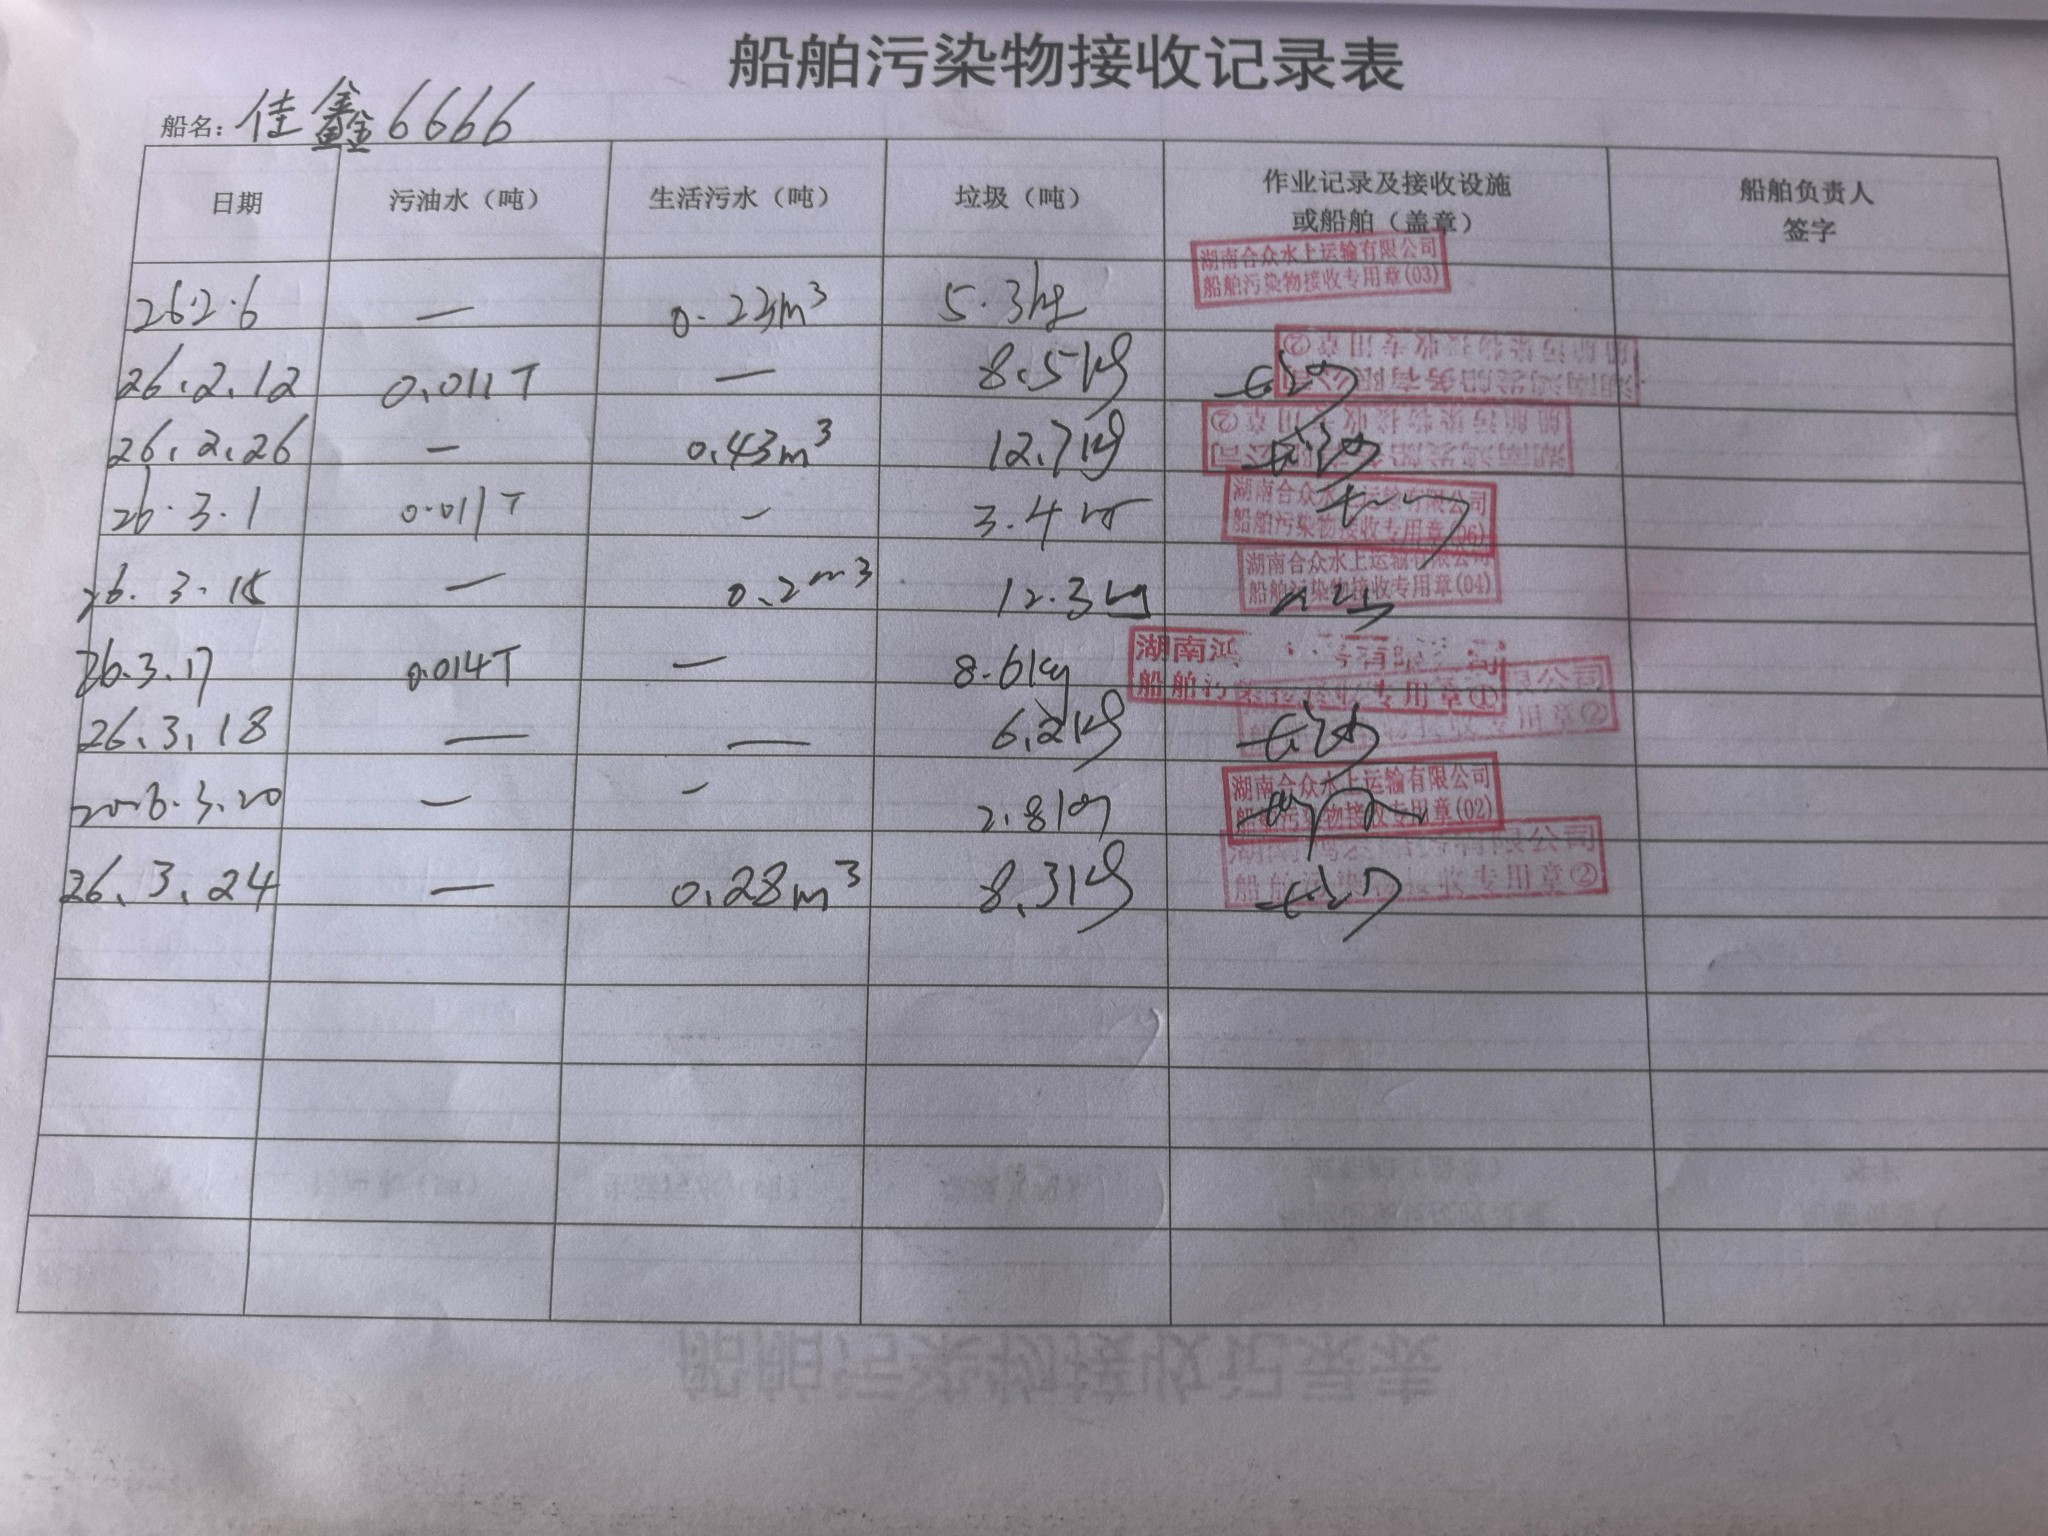 船舶污染物接收记录表
船名：佳鑫6666
日期 污油水（吨） 生活污水（吨） 垃圾（吨） 作业记录及接收设施或船舶（盖章） 船舶负责人签字
26.2.6 — 0.23m³ 5.3kg 湖南合众水上运输有限公司 船舶污染物接收专用章(03)
26.2.12 0.011T — 8.5kg 船舶污染物接收专用章②
26.2.26 — 0.43m³ 12.7kg 船舶污染物接收专用章②
26.3.1 0.011T — 3.4 湖南合众水上运输有限公司 船舶污染物接收专用章(06)
26.3.15 — 0.2m³ 12.3kg 湖南合众水上运输有限公司 船舶污染物接收专用章(04)
26.3.17 0.014T — 8.6kg 湖南鸿 有限公司 船舶污染物接收专用章①
26.3.18 — — 6.2kg 限公司 接收专用章②
2026.3.20 — — 2.8kg 湖南合众水上运输有限公司 船舶污染物接收专用章(02)
26.3.24 — 0.28m³ 8.3kg 有限公司 船舶污染物接收专用章②